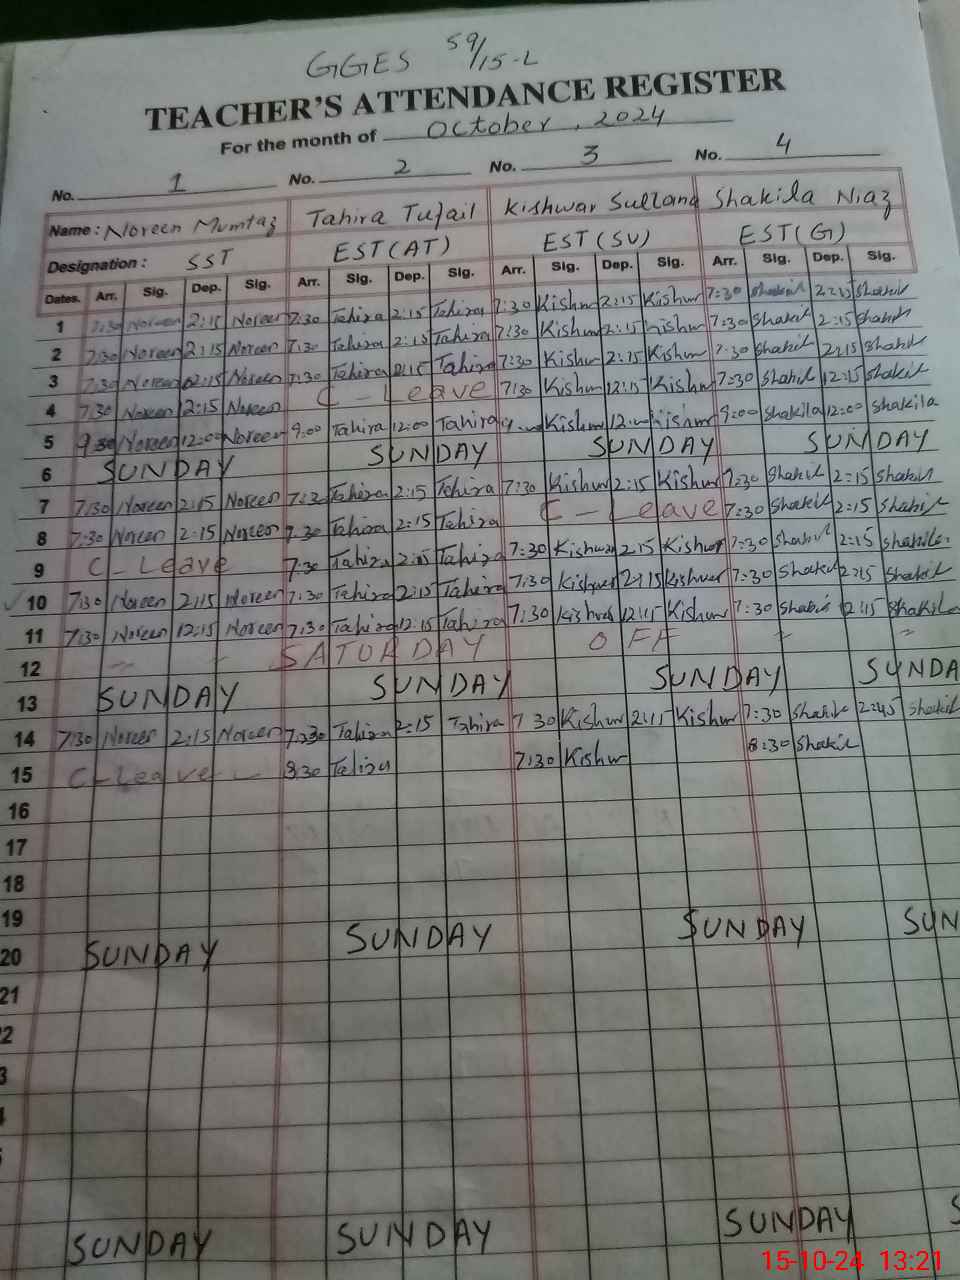 GGES 59/15-L
TEACHER'S ATTENDANCE REGISTER
For the month of October, 2024
No. 1 No. 2 No. 3 No. 4
Name: Noreen Mumtaz Tahira Tufail Kishwar Sultana Shakila Niaz
Designation: SST EST(AT) EST(SV) EST(G)
Dates. Arr. Sig. Dep. Sig. Arr. Sig. Dep. Sig. Arr. Sig. Dep. Sig. Arr. Sig. Dep. Sig.
1 7:30 Noreen 2:15 Noreen 7:30 Tahira 2:15 Tahira 7:30 Kishwr 2:15 Kishwr 7:30 Shakil 2:15 Shakil
2 7:30 Noreen 2:15 Noreen 7:30 Tahira 2:15 Tahira 7:30 Kishwr 2:15 Kishwr 7:30 Shakil 2:15 Shakil
3 7:30 Noreen 2:15 Noreen 7:30 Tahira 2:15 Tahira 7:30 Kishwr 2:15 Kishwr 7:30 Shakil 2:15 Shakil
4 7:30 Noreen 12:15 Noreen C-Leave 7:30 Kishwr 12:15 Kishwr 7:30 Shakil 12:15 Shakil
5 Noreen 12:00 Noreen 9:00 Tahira 12:00 Tahira Kishwr Kishwr 9:00 Shakila 12:00 Shakila
6 SUNDAY SUNDAY SUNDAY SUNDAY
7 7:30 Noreen 2:15 Noreen 7:30 Tahira 2:15 Tahira 7:30 Kishwr 2:15 Kishwr 7:30 Shakil 2:15 Shakil
8 7:30 Noreen 2:15 Noreen 7:30 Tahira 2:15 Tahira C-Leave 7:30 Shakil 2:15 Shakil
9 C-Leave 7:30 Tahira 2:15 Tahira 7:30 Kishwar 2:15 Kishwr 7:30 Shakil 2:15 Shakila
10 7:30 Noreen 2:15 Noreen 7:30 Tahira 2:15 Tahira 7:30 Kishwer 2:15 Kishwer 7:30 Shakil 2:15 Shakil
11 7:30 Noreen 12:15 Noreen 7:30 Tahira 12:15 Tahira 7:30 Kishwr 12:15 Kishwr 7:30 Shakil 12:15 Shakila
12 " " SATURDAY OFF " "
13 SUNDAY SUNDAY SUNDAY SUNDA
14 7:30 Noreen 2:15 Noreen 7:30 Tahira 2:15 Tahira 7:30 Kishwr 2:15 Kishwr 7:30 Shakil 2:45 Shakil
15 C-Leave - 8:30 Tahira 7:30 Kishwr 8:30 Shakil
16
17
18
19
20 SUNDAY SUNDAY SUNDAY SUN
21
2
3
SUNDAY SUNDAY SUNDAY S
15-10-24 13:21